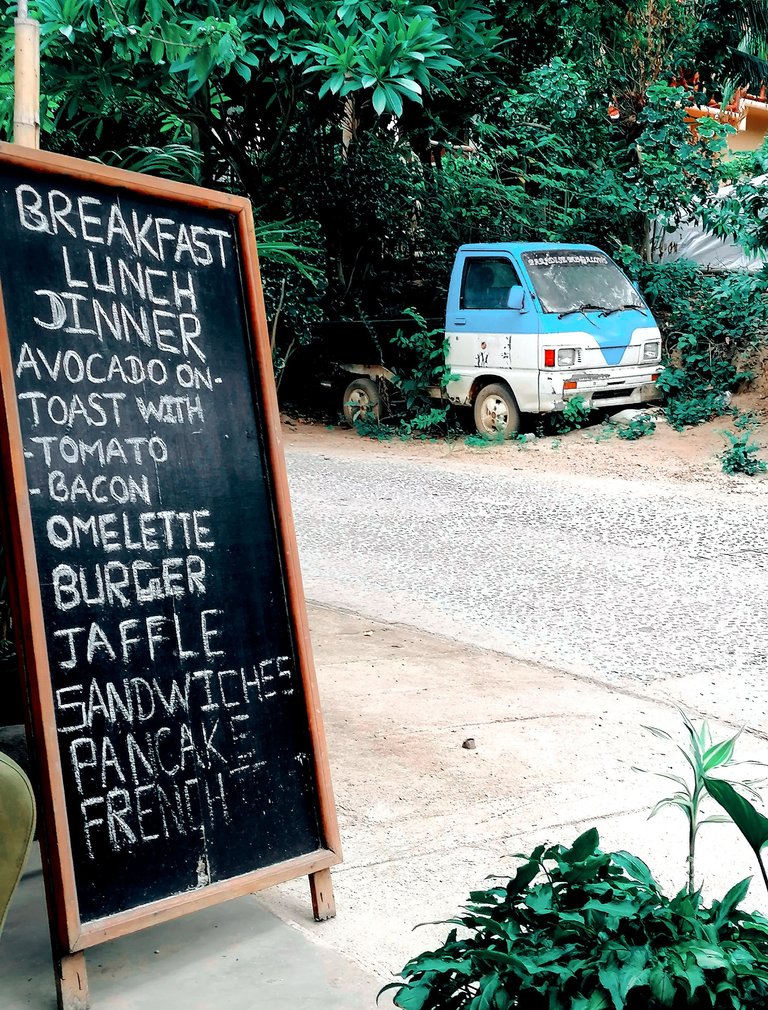 BREAKFAST
LUNCH
DINNER
AVOCADO ON-
TOAST WITH
-TOMATO
-BACON
OMELETTE
BURGER
JAFFLE
SANDWICHES
PANCAKE
FRENCH
PARADISE BUNGALOWS